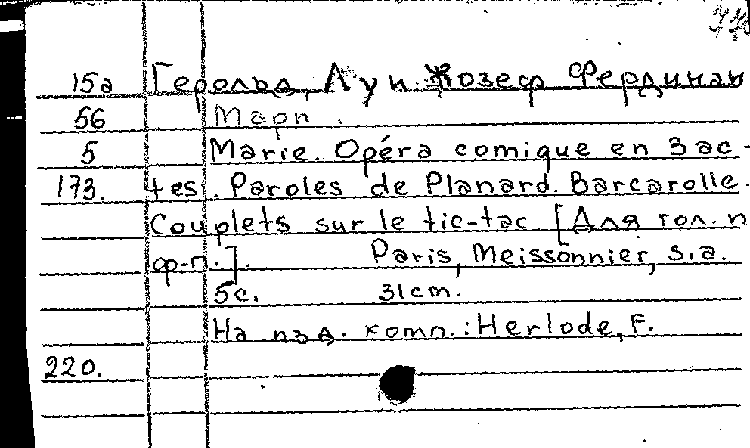 15а Герольд, Луи Жозеф Фердинан
56 Мари.
5 Marie. Opéra comique en 3 ac-
173. tes. Paroles de Planard. Barcarolle.
Couplets sur le tic-tac [Для гол. п
ф-п.]. Paris, Meissonnier, s.a.
5с. 31cm.
На изд. комп.: Herlode, F.
220.